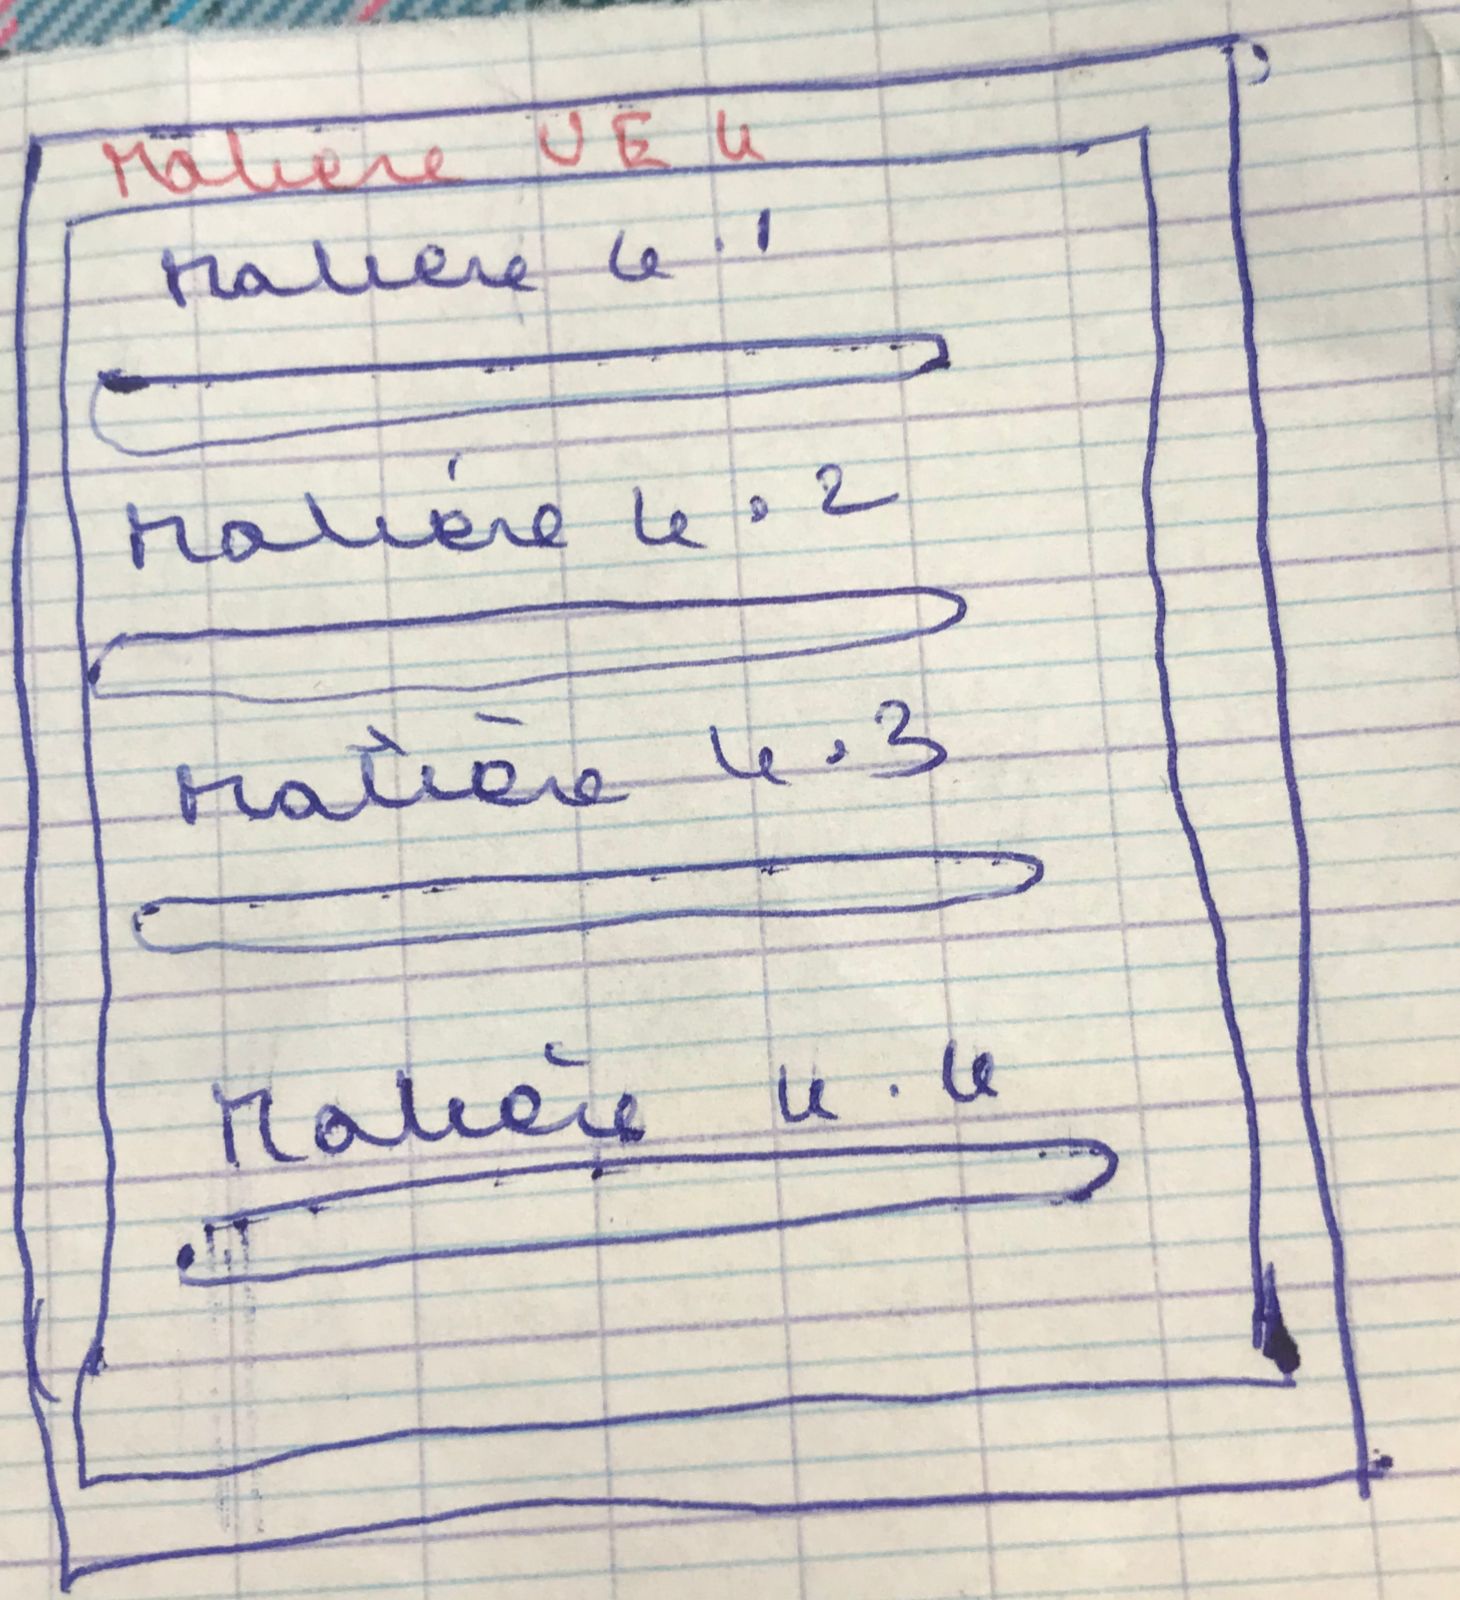 Matiere UE 4
Matière 4.1
Matiére 4.2
Matière 4.3
Matière 4.4